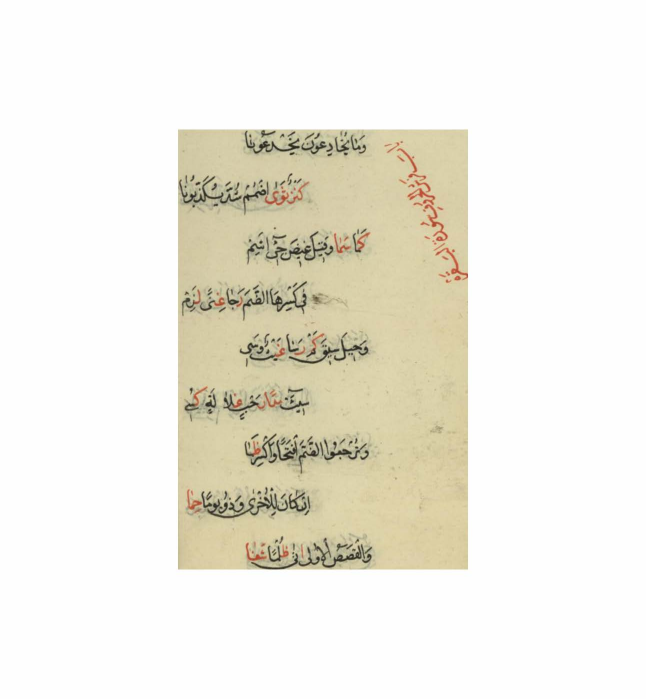 فرش الحروف سورة البقرة
وما يخادعون يخدعونا
كنز ثوى اضمم شد يكذبونا
كما سما وقيل غيض جى اشم
فى كسرها الضم رجا غنى لزم
وحيل سيق كم رسا غيث وسى
سيئت مدا رحب غلالة كسى
وترجعوا الضم افتحا واكسر ظما
ان كان للأخرى وذو يوما حما
والقصص الأولى اتى ظلما شفا